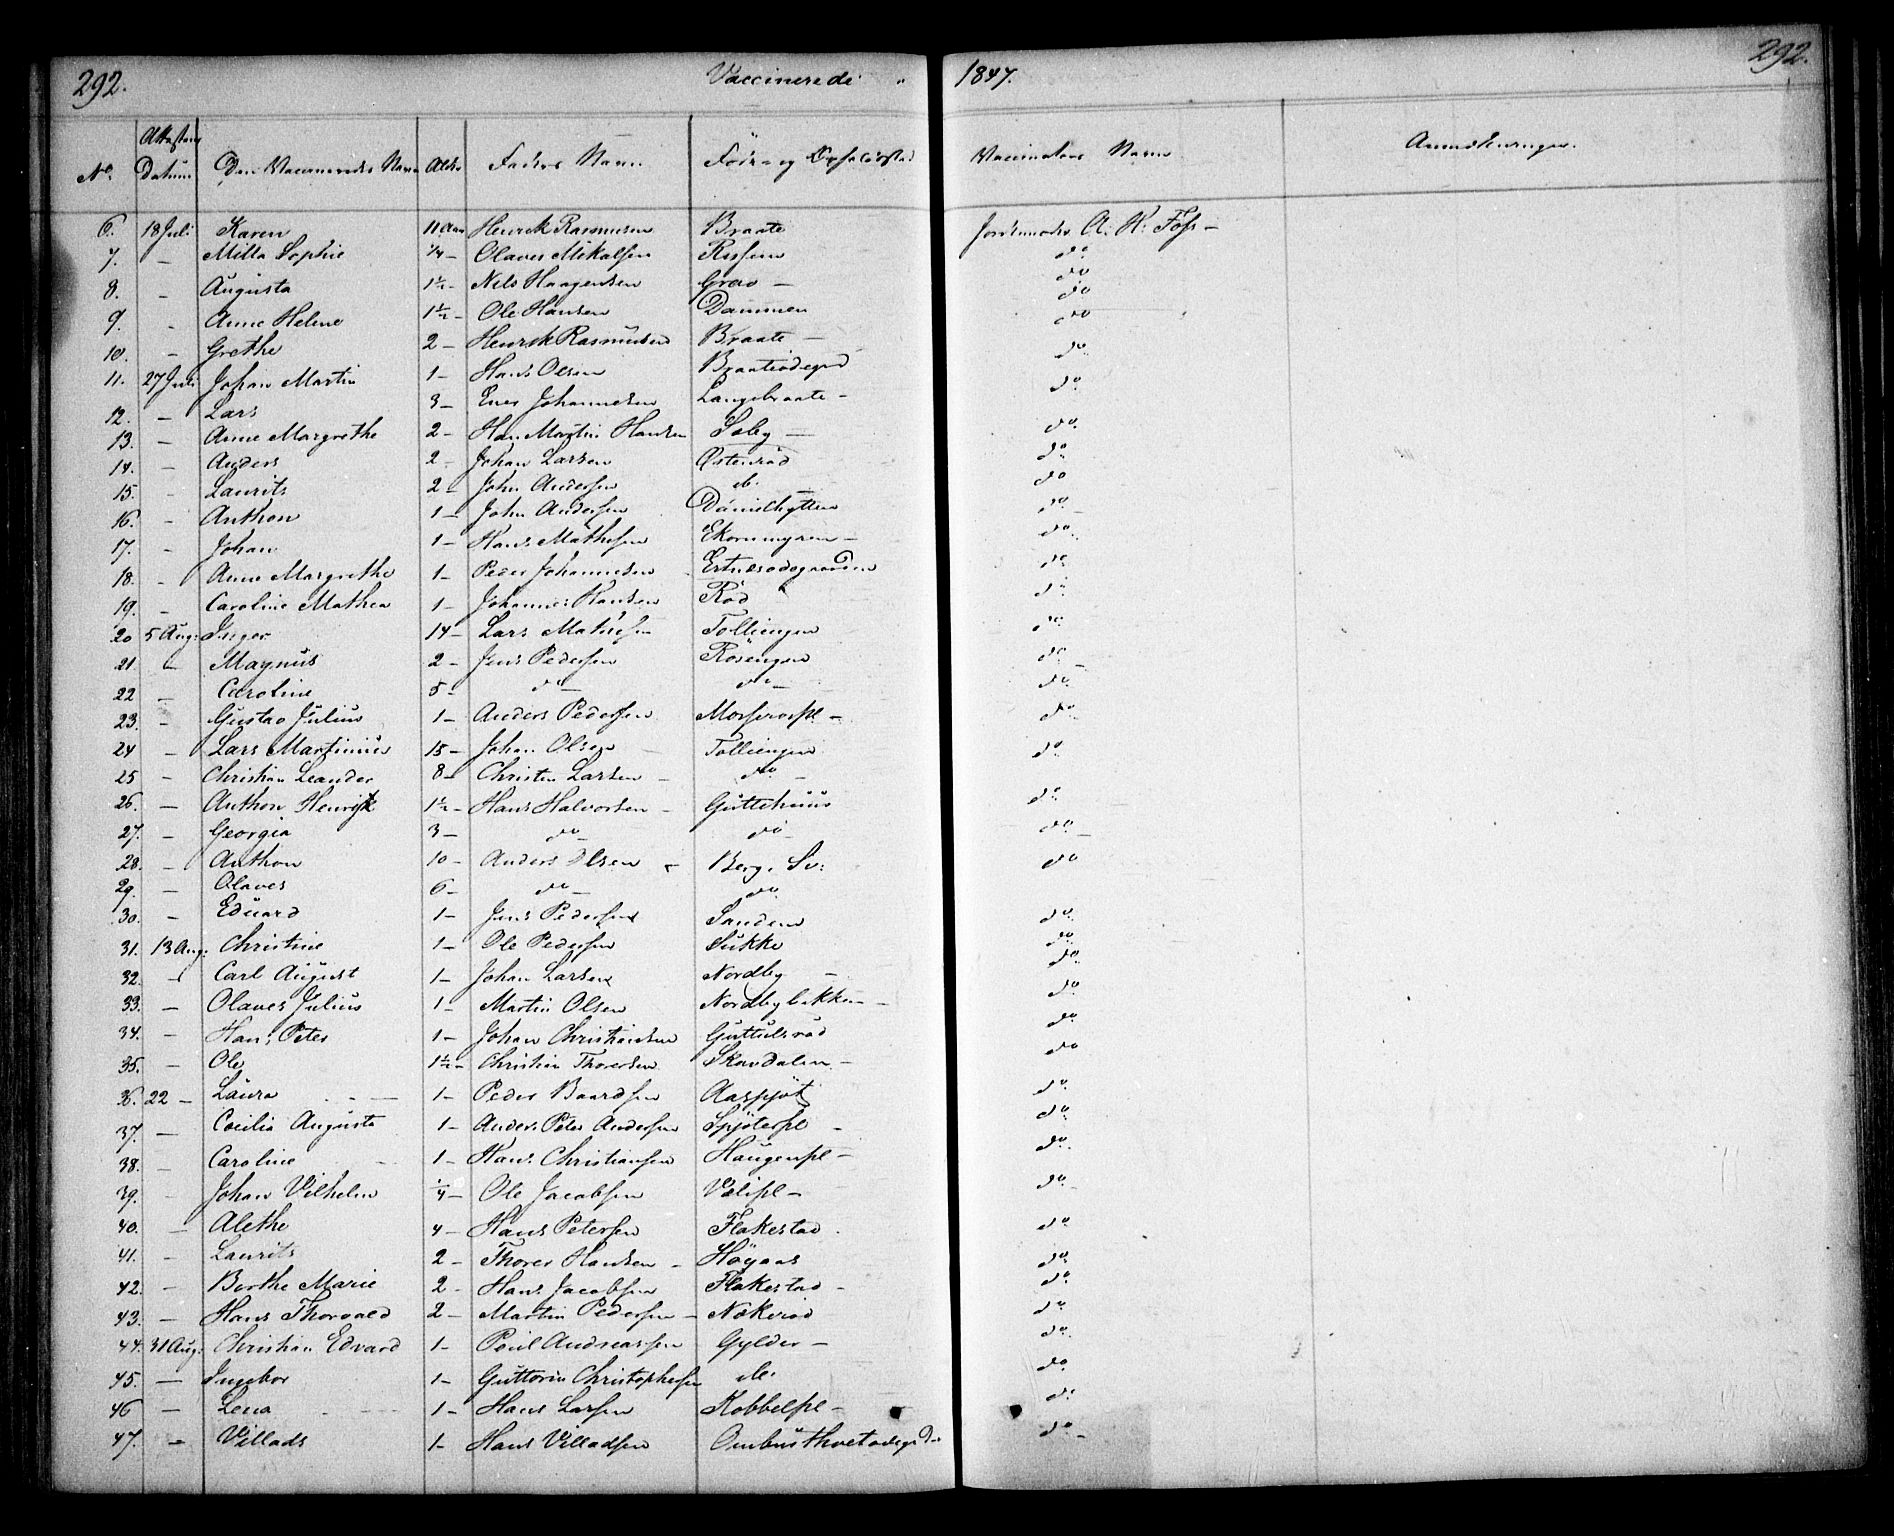 292. Vaccinerede 1847. 292.
No. Attestens Datum Den Vaccineredes Navn Alder Faders Navn Føde- og Opholdssted Vaccinators Navn Anmerkninger.
6. 18 Juli Karen 11 Aar Henrik Rasmusen Braate Jordemoder A: K: Foss -
7. - Milla Sophie 1/4 - Olaves Mikalsen do.
8. - Augusta 1 1/2 - Nils Haagensen Grav - do
9. - Anne Helene 1 1/2 - Ole Hansen Dammen do
10. - Grethe 2 - Henrik Rasmusen Braate - do
11. 27 Juli Johan Martin 1 - Hans Olsen do.
12. - Lars 3 - Johannesen Langebraate - do.
13. - Anne Margrethe 2 - Han Martin Hansen Soleg - do.
14. - Anders 2 - Johan Larsen Østenrød do.
15. - Laurits 2 - John Andersen do. do
16. - Anthon 1 - John Andersen Danielhytten do. -
17. - Johan 1 - Hans Mathesen Ekornmyren - do.
18. - Anne Margrethe 1 - Peder Johannesen do.
19. - Caroline Mathea 1 - Johannes Hansen Rød do.
20 5 Aug: Inger 14 - Lars Mathisen Tolliengen do.
21. - Magnus 2 - Jens Pedersen Rösengen do. -
22 - Caroline 5 - do - do - do.
23. - Gustav Julius 1 - Anders Pedersen do.
24 - Lars Martinius 15 - Johan Olsen Tolliengen do.
25 - Christian Leander 8 - Christen Larsen - do -
26. - Anthon Henrik 1 1/2 - Hans Halvorsen - Guttehuus do.
27. - Georgia 3 - do - do - do. -
28. - Anthon 10 - Anders Olsen - Berg, Sv: do
29. - Olaves 6 - do - do
30. - Eduard 1 - Jens Pedersen Sanden do.
31. 13 Aug: Christine 1 - Ole Pedersen Sukke do.
32. - Carl August 1 - Johan Larsen Nordby - do.
33. - Olaves Julius 1 - Martin Olsen Nordbybakken - do.
34. - Hans Peter 1 - Johan Christiansen Guttulsrød do.
35. - Ole 1 1/2 - Christian Thoresen Skovdalen - do
36. 22 - Laura 1 - Peder Baardsen Aaspjöt do.
37. - Cecilia Augusta 1 - Anders Peter Andersen Spjöterpl - do.
38. - Caroline 1 - Hans Christiansen Haugenpl - do.
39. - Johan Vilhelm 1/4 - Ole Jacobsen Valipl - do. -
40. - Alethe 4 - Hans Petersen Flakestad. do.
41. - Laurits 2 - Thorer Hansen - Höyaas do.
42. - Berthe Marie 2 - Hans Jacobsen Flakestad - do.
43. - Hans Thorvald 2 - Martin Pedersen - Nøkerød do.
44. 31 Aug: Christian Edvard 1 - Poul Andreassen Gylder - do.
45. - Ingebor 1 - Guttorm Christophersen do. do.
46 - Lena 1 - Hans Larsen Kobbelpl - do.
47. - Villads 1 - Hans Villadsen do. -